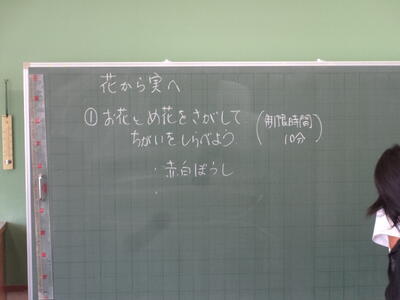 花から実へ
①お花とめ花をさがして
ちがいをしらべよう
(制限時間
10分)
・赤白ぼうし
・